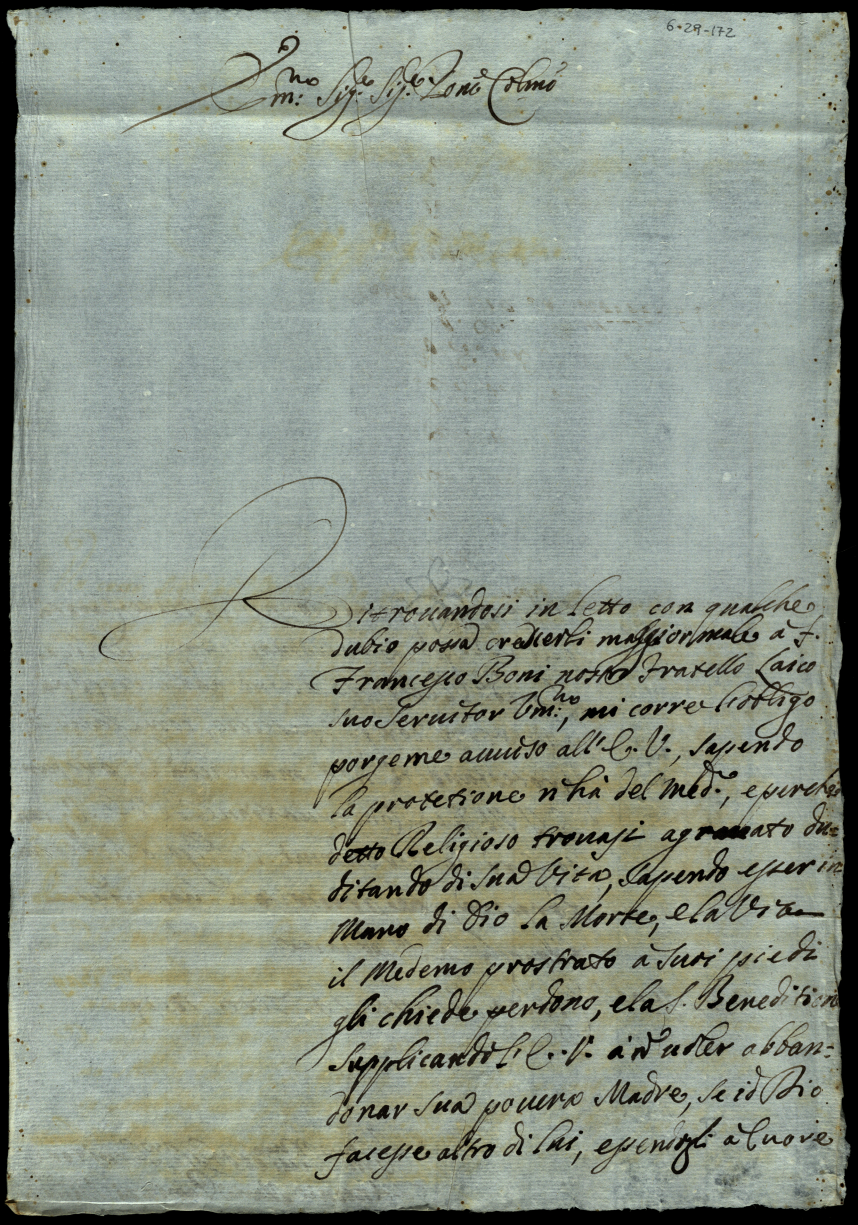 6-29-172
Em:no Sig:e Sig:e Pone Colmo
Ritrouandosi in letto con qualche
dubio possa crescerli maggior male à f.
Francesco Boni nostro Fratello Laico
suo Seruitor Um:no, mi corre l'obligo
porgerne auuiso all'E. V., sapendo
la protetione n'hà del med.o, e perche
detto Religioso trouasi agrauato du=
bitando di sua Vita, sapendo esser in
Mano di Dio la Morte, e la Vita
il Medemo prostrato à suoi piedi
gli chiede perdono, e la S. Beneditione
supplicando l'E. V. à nō uoler abban=
donar sua pouera Madre, se id Dio
facesse altro di lui, essendogli à Cuore